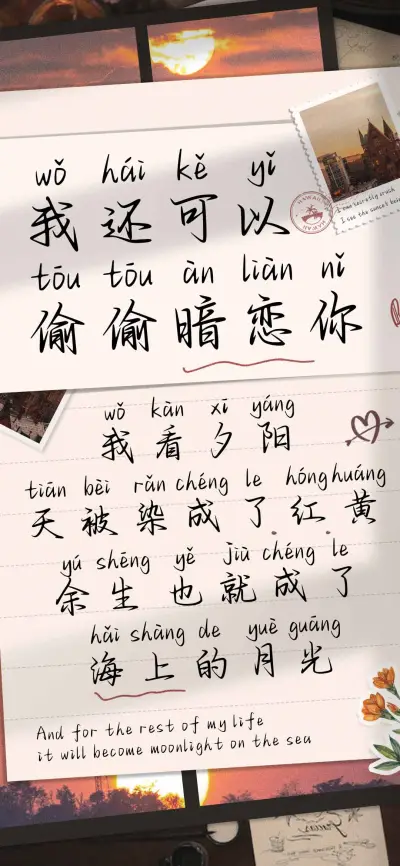 wǒ hái kě yǐ
我还可以
tōu tōu àn liàn nǐ
偷偷暗恋你
I can secretly crush
I see the sunset
HAWAII
wǒ kàn xī yáng
我看夕阳
tiān bèi rǎn chéng le hóng huáng
天被染成了红黄
yú shēng yě jiù chéng le
余生也就成了
hǎi shàng de yuè guāng
海上的月光
And for the rest of my life
it will become moonlight on the sea